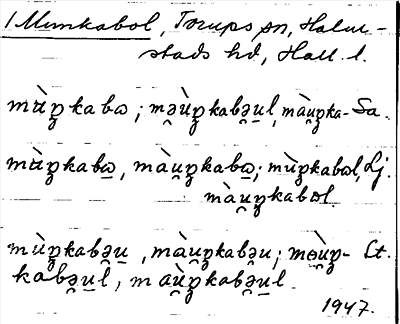 1 Munkabol, Torups sn, Halm-
stads hd, Hall. l.
mùŋkabɷ; mə̯ùŋkabə̯u̲l, màu̯ŋka- Sa.
mùŋkabɷ̲, màu̯ŋkabɷ̲; mùŋkabɷl, Lj.
màu̯ŋkabɷl.
mùŋkabə̯u̲, màu̯ŋkabə̯u; mɵ̯ùŋ- Lt.
kabə̯u̲l, maùŋkabə̯u̲l.
1947.